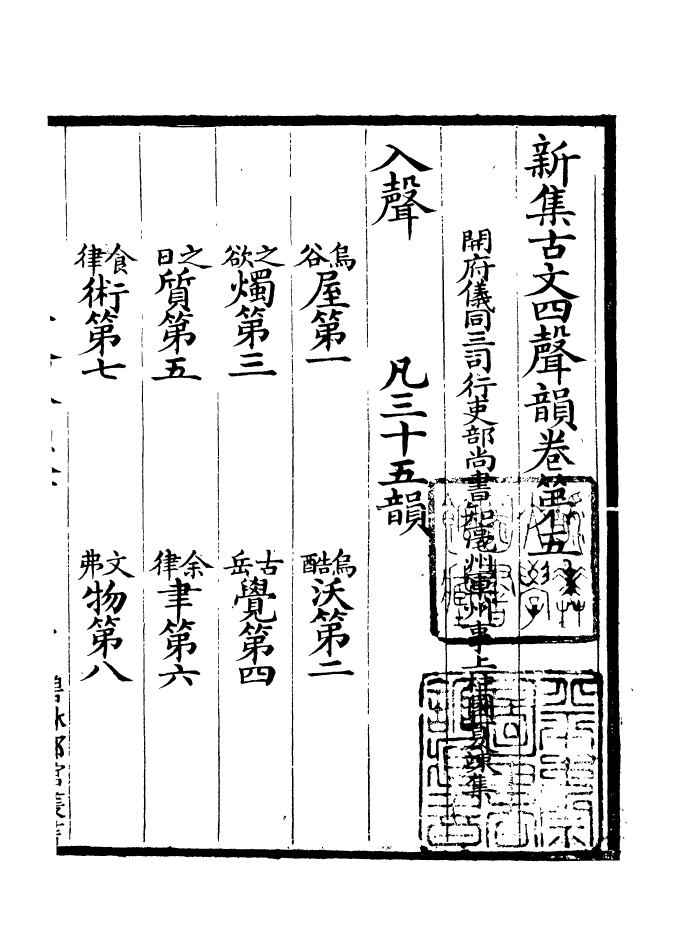 新集古文四聲韻卷第五
開府儀同三司行吏部尚書知亳州軍州事上柱國夏竦集
入聲 凡三十五韻
烏谷屋第一 烏酷沃第二
之欲燭第三 古岳覺第四
之日質第五 余律聿第六
食律術第七 文弗物第八